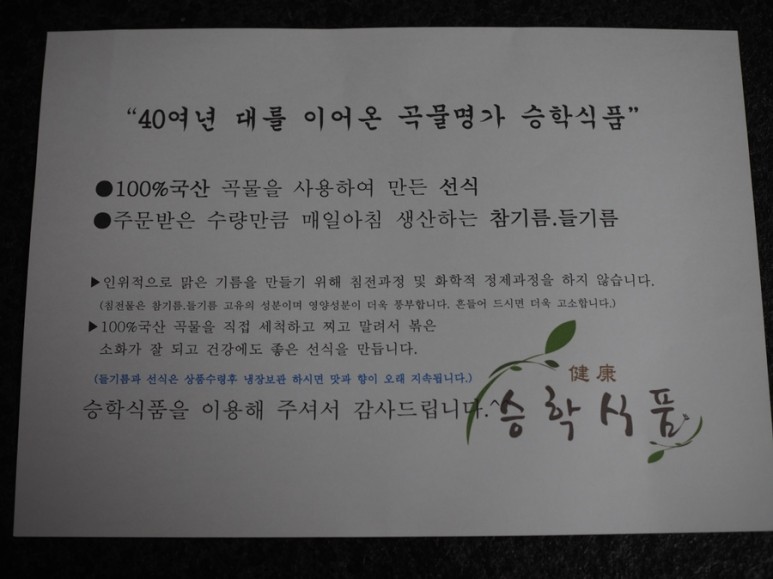 “40여년 대를 이어온 곡물명가 승학식품”
●100%국산 곡물을 사용하여 만든 선식
●주문받은 수량만큼 매일아침 생산하는 참기름.들기름
▶인위적으로 맑은 기름을 만들기 위해 침전과정 및 화학적 정제과정을 하지 않습니다.
(침전물은 참기름.들기름 고유의 성분이며 영양성분이 더욱 풍부합니다. 흔들어 드시면 더욱 고소합니다.)
▶100%국산 곡물을 직접 세척하고 찌고 말려서 볶은
소화가 잘 되고 건강에도 좋은 선식을 만듭니다.
(들기름과 선식은 상품수령후 냉장보관 하시면 맛과 향이 오래 지속됩니다.)
승학식품을 이용해 주셔서 감사드립니다.^
健康
승학식품